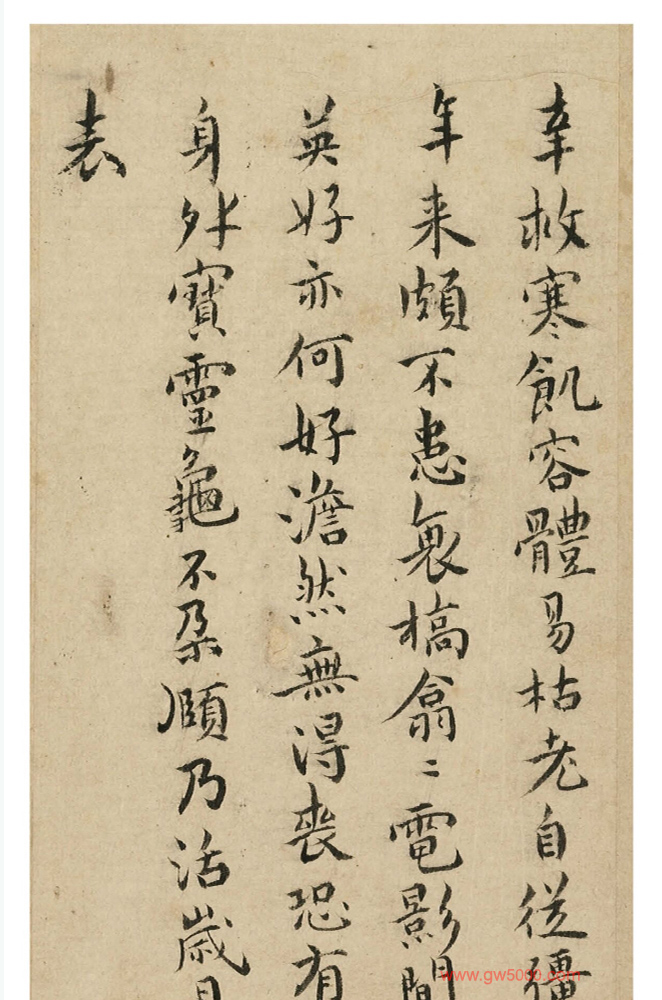 幸救寒飢容體易枯老自從彊
年来頗不患衰槁翕〻電影間
英好亦何好澹然無得喪恐有
身外寶靈龜不朶頤乃活歲月
表
www.gw5000.com